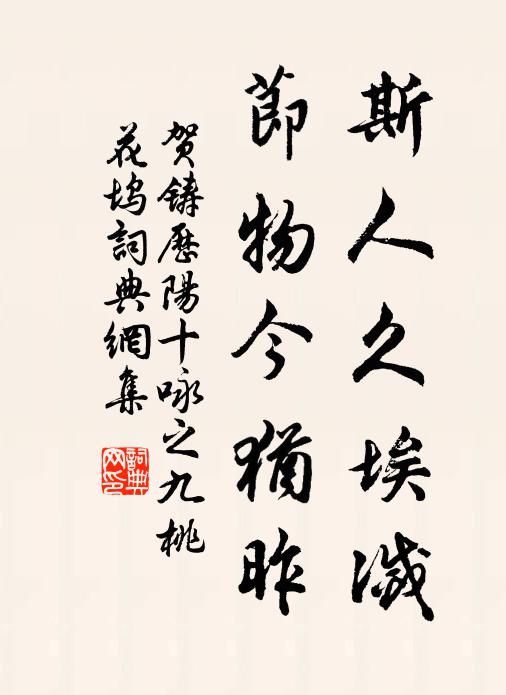 斯人久埃滅
節物今猶昨
賀鑄歷陽十咏之九桃
花塢詞典網集
詞典
网印